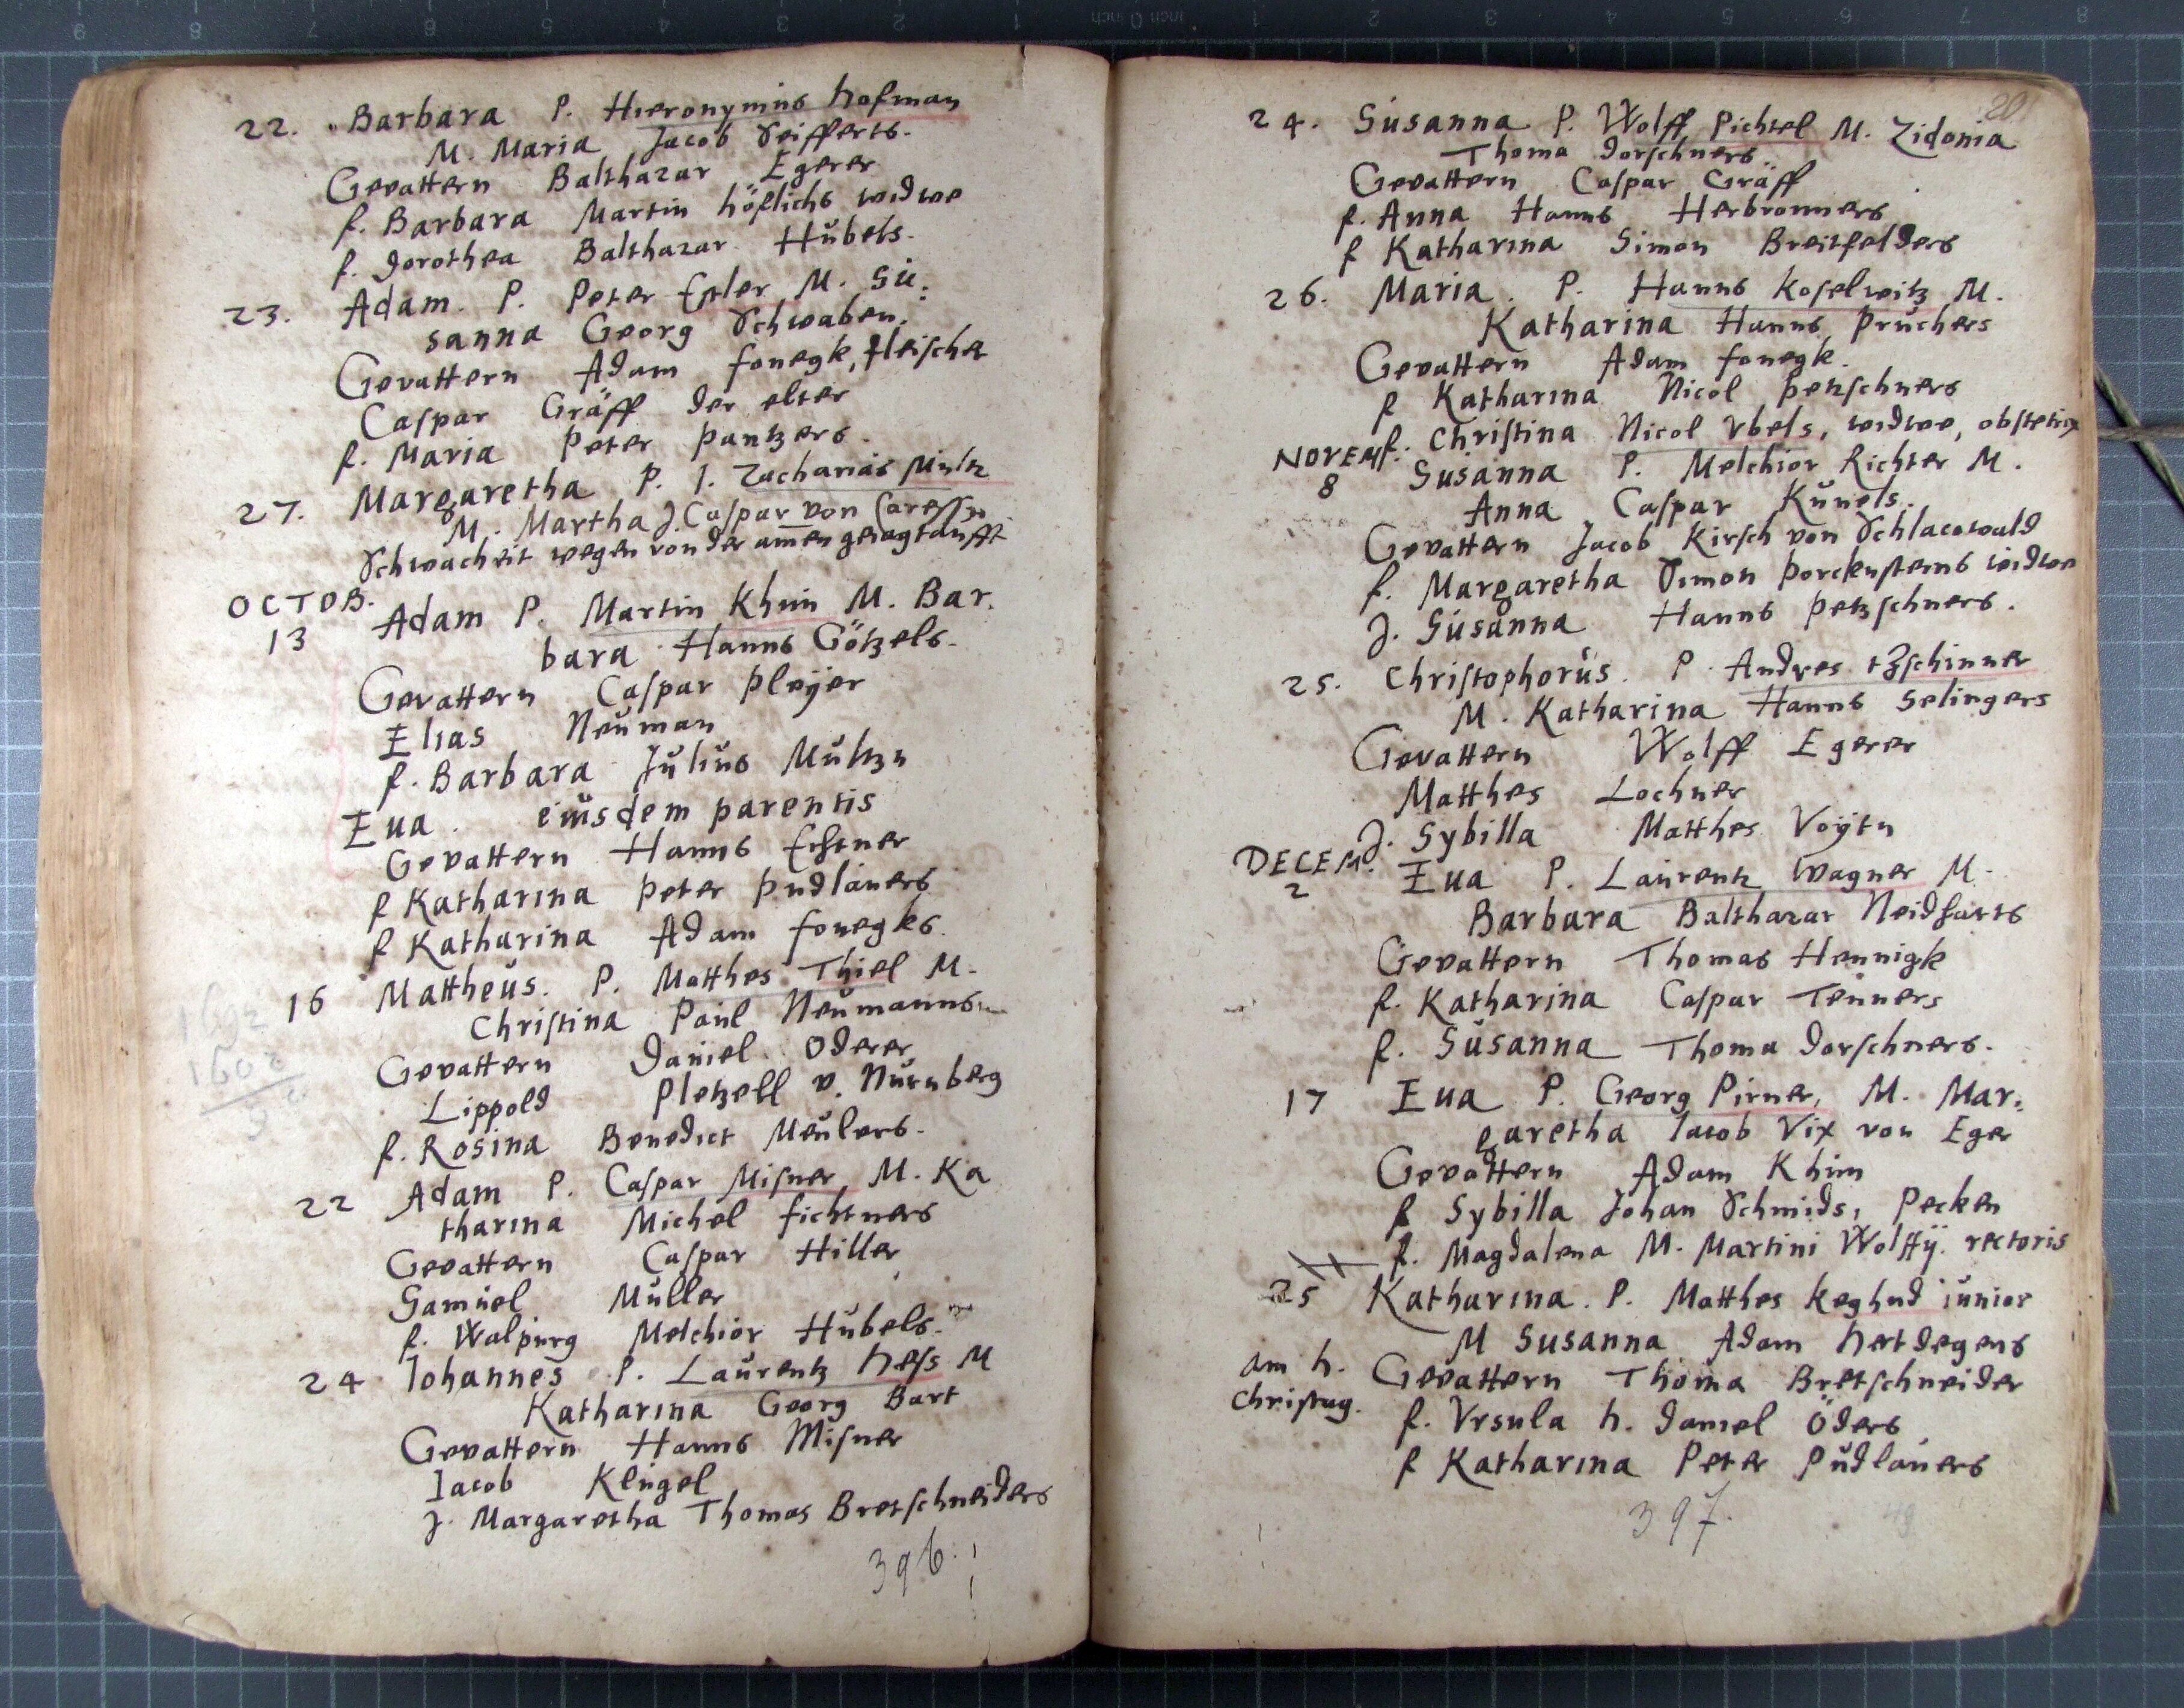 22. Barbara P. Hieronymus Hofman
M. Maria Jacob Seifferts.
Gevattern Balthazar Egerer
f. Barbara Martin Höflichs widwe
f. Dorothea Balthazar Hübels.
23. Adam. P. Peter M. Su:
sanna Georg Schwaben.
Gevattern Adam Fonegk, fleischer
Caspar Gräff der elter
f. Maria Peter Pantzers.
27. Margaretha P. J. Zacharias
M. Martha J. Caspar von
Schwacheit wegen von der amen
OCTOB.
13 Adam P. Martin Khun M. Bar.
bara Hanns Götzels.
Gevattern Caspar Pleÿer
Elias Neuman
f. Barbara Julius Multzn
Eua. eiusdem parentis
Gevattern Hanns
f Katharina Peter Pudlauers
f Katharina Adam Fonegks.
16 Mattheus. P. Matthes Thiel M.
Christina Paul Neumanns
Gevattern Daniel Öderer
Lippold Pletzell v. Nürnberg
f. Rosina Benedict Meulers.
22 Adam P. Caspar Misner, M. Ka
tharina Michel Fichtners
Gevattern Caspar Hiller
Samuel Müller
f. Walpurg Melchior Hübels.
24 Johannes P. Laurentz Hess M
Katharina Georg Bart
Gevattern Hanns Misner
Jacob Klügel
J. Margaretha Thomas Bretschneiders
396.
201
24. Susanna P. Wolff Pichtel M. Zidonia
Thoma Dorschners.
Gevattern Caspar Gräff
f. Anna Hanns Herbronners
f Katharina Simon Breitfelders
26. Maria. P. Hanns Koselwitz M.
Katharina Hanns Pruchers
Gevattern Adam Fonegk.
f Katharina Nicol Petzschners
f. Christina Nicol Vbels, widwe, obstetrix
NOVEM
8 Susanna P. Melchior Richter M.
Anna Caspar Künels.
Gevattern Jacob Kirsch von Schlacowald
f. Margaretha Simon Porckensteins widwe
J. Susanna Hanns Petzschners.
25. Christophorus. P. Andres tzschinner
M. Katharina Hanns Selingers
Gevattern Wolff Egerer
Matthes Lochner
J. Sybilla Matthes Voÿtn
DECEM.
2 Eua P. Laurentz Wagner M.
Barbara Balthazar Neidharts
Gevattern Thomas Hennigk
f. Katharina Caspar Teuners
f. Susanna Thoma Dorschners.
17 Eua P. Georg Pirner, M. Mar:
garetha Jacob Vix von Eger
Gevattern Adam Khim
f Sybilla Johan Schmids, Pecken
f. Magdalena M. Martini Wolffÿ. rectoris
25 Katharina. P. Matthes Keghnd iunior
M Susanna Adam Hertdegens
am h. Christag. Gevattern Thoma Bretschneider
f. Vrsula H. Daniel Öders
f Katharina Peter Pudlauers
397.
49